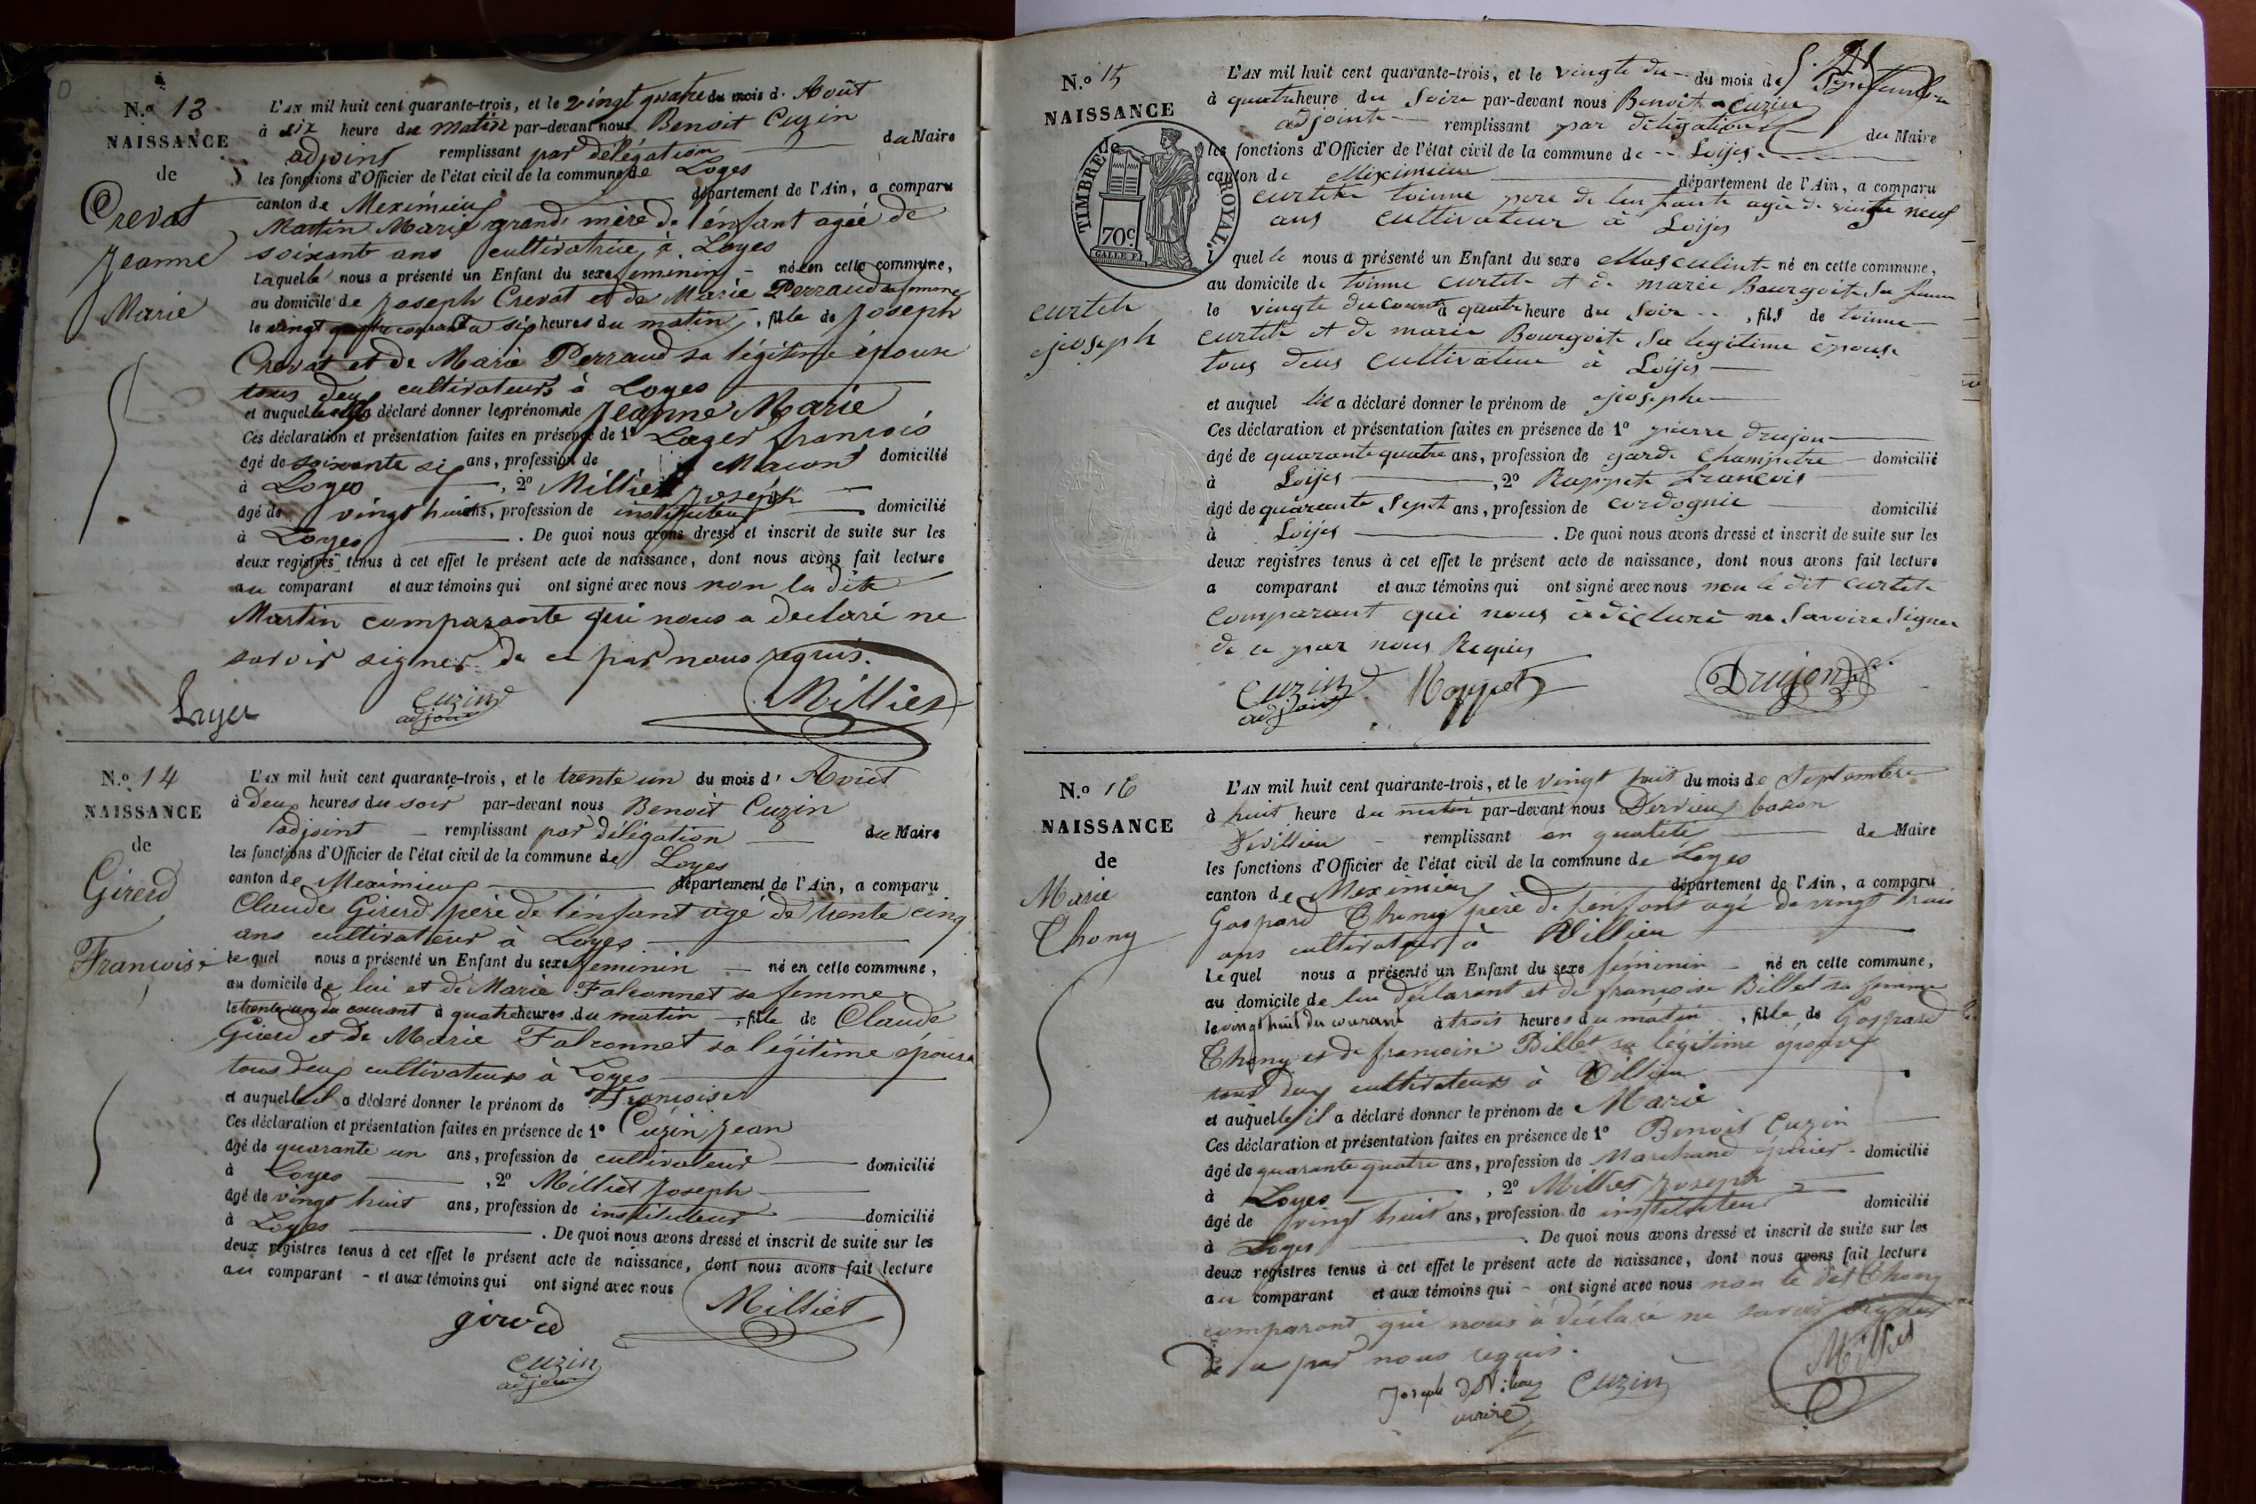 N.º 13
NAISSANCE
de
Crevat
Jeanne
Marie
L'AN mil huit cent quarante-trois, et le vingt quatre du mois d' Août
à six heure du matin par-devant nous Benoit Cuzin
adjoint remplissant par délégation du Maire
les fonctions d'Officier de l'état civil de la commune de Loyes
canton de Meximieux département de l'Ain, a comparu
Martin Marie grand mère de l'enfant agée de
soixante ans cultivatrice à Loyes
laquelle nous a présenté un Enfant du sexe feminin né en cette commune,
au domicile de Joseph Crevat et de Marie Perraud sa femme
le vingt quatre courant à six heures du matin, fille de Joseph
Crevat et de Marie Perraud sa légitime épouse
tous deux cultivateurs à Loyes
et auquel elle a déclaré donner les prénoms de Jeanne Marie
Ces déclaration et présentation faites en présence de 1º Layer françois
âgé de soixante six ans, profession de Macon domicilié
à Loyes, 2º Milliet Joseph
âgé de vingt huit ans, profession de instituteur domicilié
à Loyes. De quoi nous avons dressé et inscrit de suite sur les
deux registres tenus à cet effet le présent acte de naissance, dont nous avons fait lecture
au comparant et aux témoins qui ont signé avec nous non la dite
Martin comparante qui nous a declaré ne
savoir signer de ce par nous requis.
Layer
Cuzin
adjoint
Milliet
N.º 14
NAISSANCE
de
Girerd
Françoise
L'AN mil huit cent quarante-trois, et le trente un du mois d' Août
à deux heures du soir par-devant nous Benoit Cuzin
adjoint remplissant par délégation du Maire
les fonctions d'Officier de l'état civil de la commune de Loyes
canton de Meximieux département de l'Ain, a comparu
Claude Girerd père de l'enfant agé de trente cinq
ans cultivateur à Loyes
le quel nous a présenté un Enfant du sexe feminin né en cette commune,
au domicile de lui et de Marie Falconnet sa femme
le trente un du courant à quatre heures du matin, fille de Claude
Girerd et de Marie Falconnet sa légitime épouse
tous deux cultivateurs à Loyes
et auquel il a déclaré donner le prénom de Françoise
Ces déclaration et présentation faites en présence de 1º Cuzin Jean
âgé de quarante un ans, profession de cultivateur domicilié
à Loyes, 2º Milliet Joseph
âgé de vingt huit ans, profession de instituteur domicilié
à Loyes. De quoi nous avons dressé et inscrit de suite sur les
deux registres tenus à cet effet le présent acte de naissance, dont nous avons fait lecture
au comparant et aux témoins qui ont signé avec nous
Milliet
girerd
Cuzin
adjoint
N.º 15
NAISSANCE
de
TIMBRE ROYAL
70c
curtet
joseph
L'AN mil huit cent quarante-trois, et le vingte du du mois de Septembre
à quatre heure du Soire par-devant nous Benoit Cuzin
adjointe remplissant par deligation du Maire
les fonctions d'Officier de l'état civil de la commune de Loijes
canton de Miximieu département de l'Ain, a comparu
curtete toinne pere de lenfante agée de vingte neuf
ans cultivateur à Loijes
l quel le nous a présenté un Enfant du sexe Masculint né en cette commune,
au domicile de toinne curtete et de marie Bourgoite Sa femme
le vingte du courent à quatre heure du Soire, fils de toinne
curtete et de marie Bourgoite Sa legitime épouse
tous deus cultivateur à Loijes
et auquel lil a déclaré donner le prénom de josephe
Ces déclaration et présentation faites en présence de 1º pierre drujon
âgé de quarante quatre ans, profession de garde champetre domicilié
à Loijes, 2º Roppete francois
âgé de quarante Sept ans, profession de cordognie domicilié
à Loijes. De quoi nous avons dressé et inscrit de suite sur les
deux registres tenus à cet effet le présent acte de naissance, dont nous avons fait lecture
a comparant et aux témoins qui ont signé avec nous non le dit curtete
comparant qui nous à déclaré ne Savoire Signer
de ce par nous Requis
Cuzin
adjoint
Roppet
Drujon
N.º 16
NAISSANCE
de
Marie
Thony
L'AN mil huit cent quarante-trois, et le vingt huit du mois de Septembre
à huit heure du matin par-devant nous Dervieux baron
de villieu remplissant en qualité de Maire
les fonctions d'Officier de l'état civil de la commune de Loyes
canton de Meximieux département de l'Ain, a comparu
Gaspard Thony père de l'enfant agé de vingt trois
ans cultivateur à Villieu
Le quel nous a présenté un Enfant du sexe féminin né en cette commune,
au domicile de lui déclarant et de françoise Billet sa femme
le vingt huit du courant à trois heures du matin, fille de Gaspard
Thony et de françoise Billet sa légitime épouse
tous deux cultivateurs à Villieu
et auquel il a déclaré donner le prénom de Marie
Ces déclaration et présentation faites en présence de 1º Benoit Cuzin
âgé de quarante quatre ans, profession de Marchand épicier domicilié
à Loyes, 2º Milliet Joseph
âgé de vingt huit ans, profession de instituteur domicilié
à Loyes. De quoi nous avons dressé et inscrit de suite sur les
deux registres tenus à cet effet le présent acte de naissance, dont nous avons fait lecture
au comparant et aux témoins qui ont signé avec nous non le dit Thony
comparant qui nous a déclaré ne savoir signer
de ce par nous requis.
Milliet
Cuzin
Joseph
maire